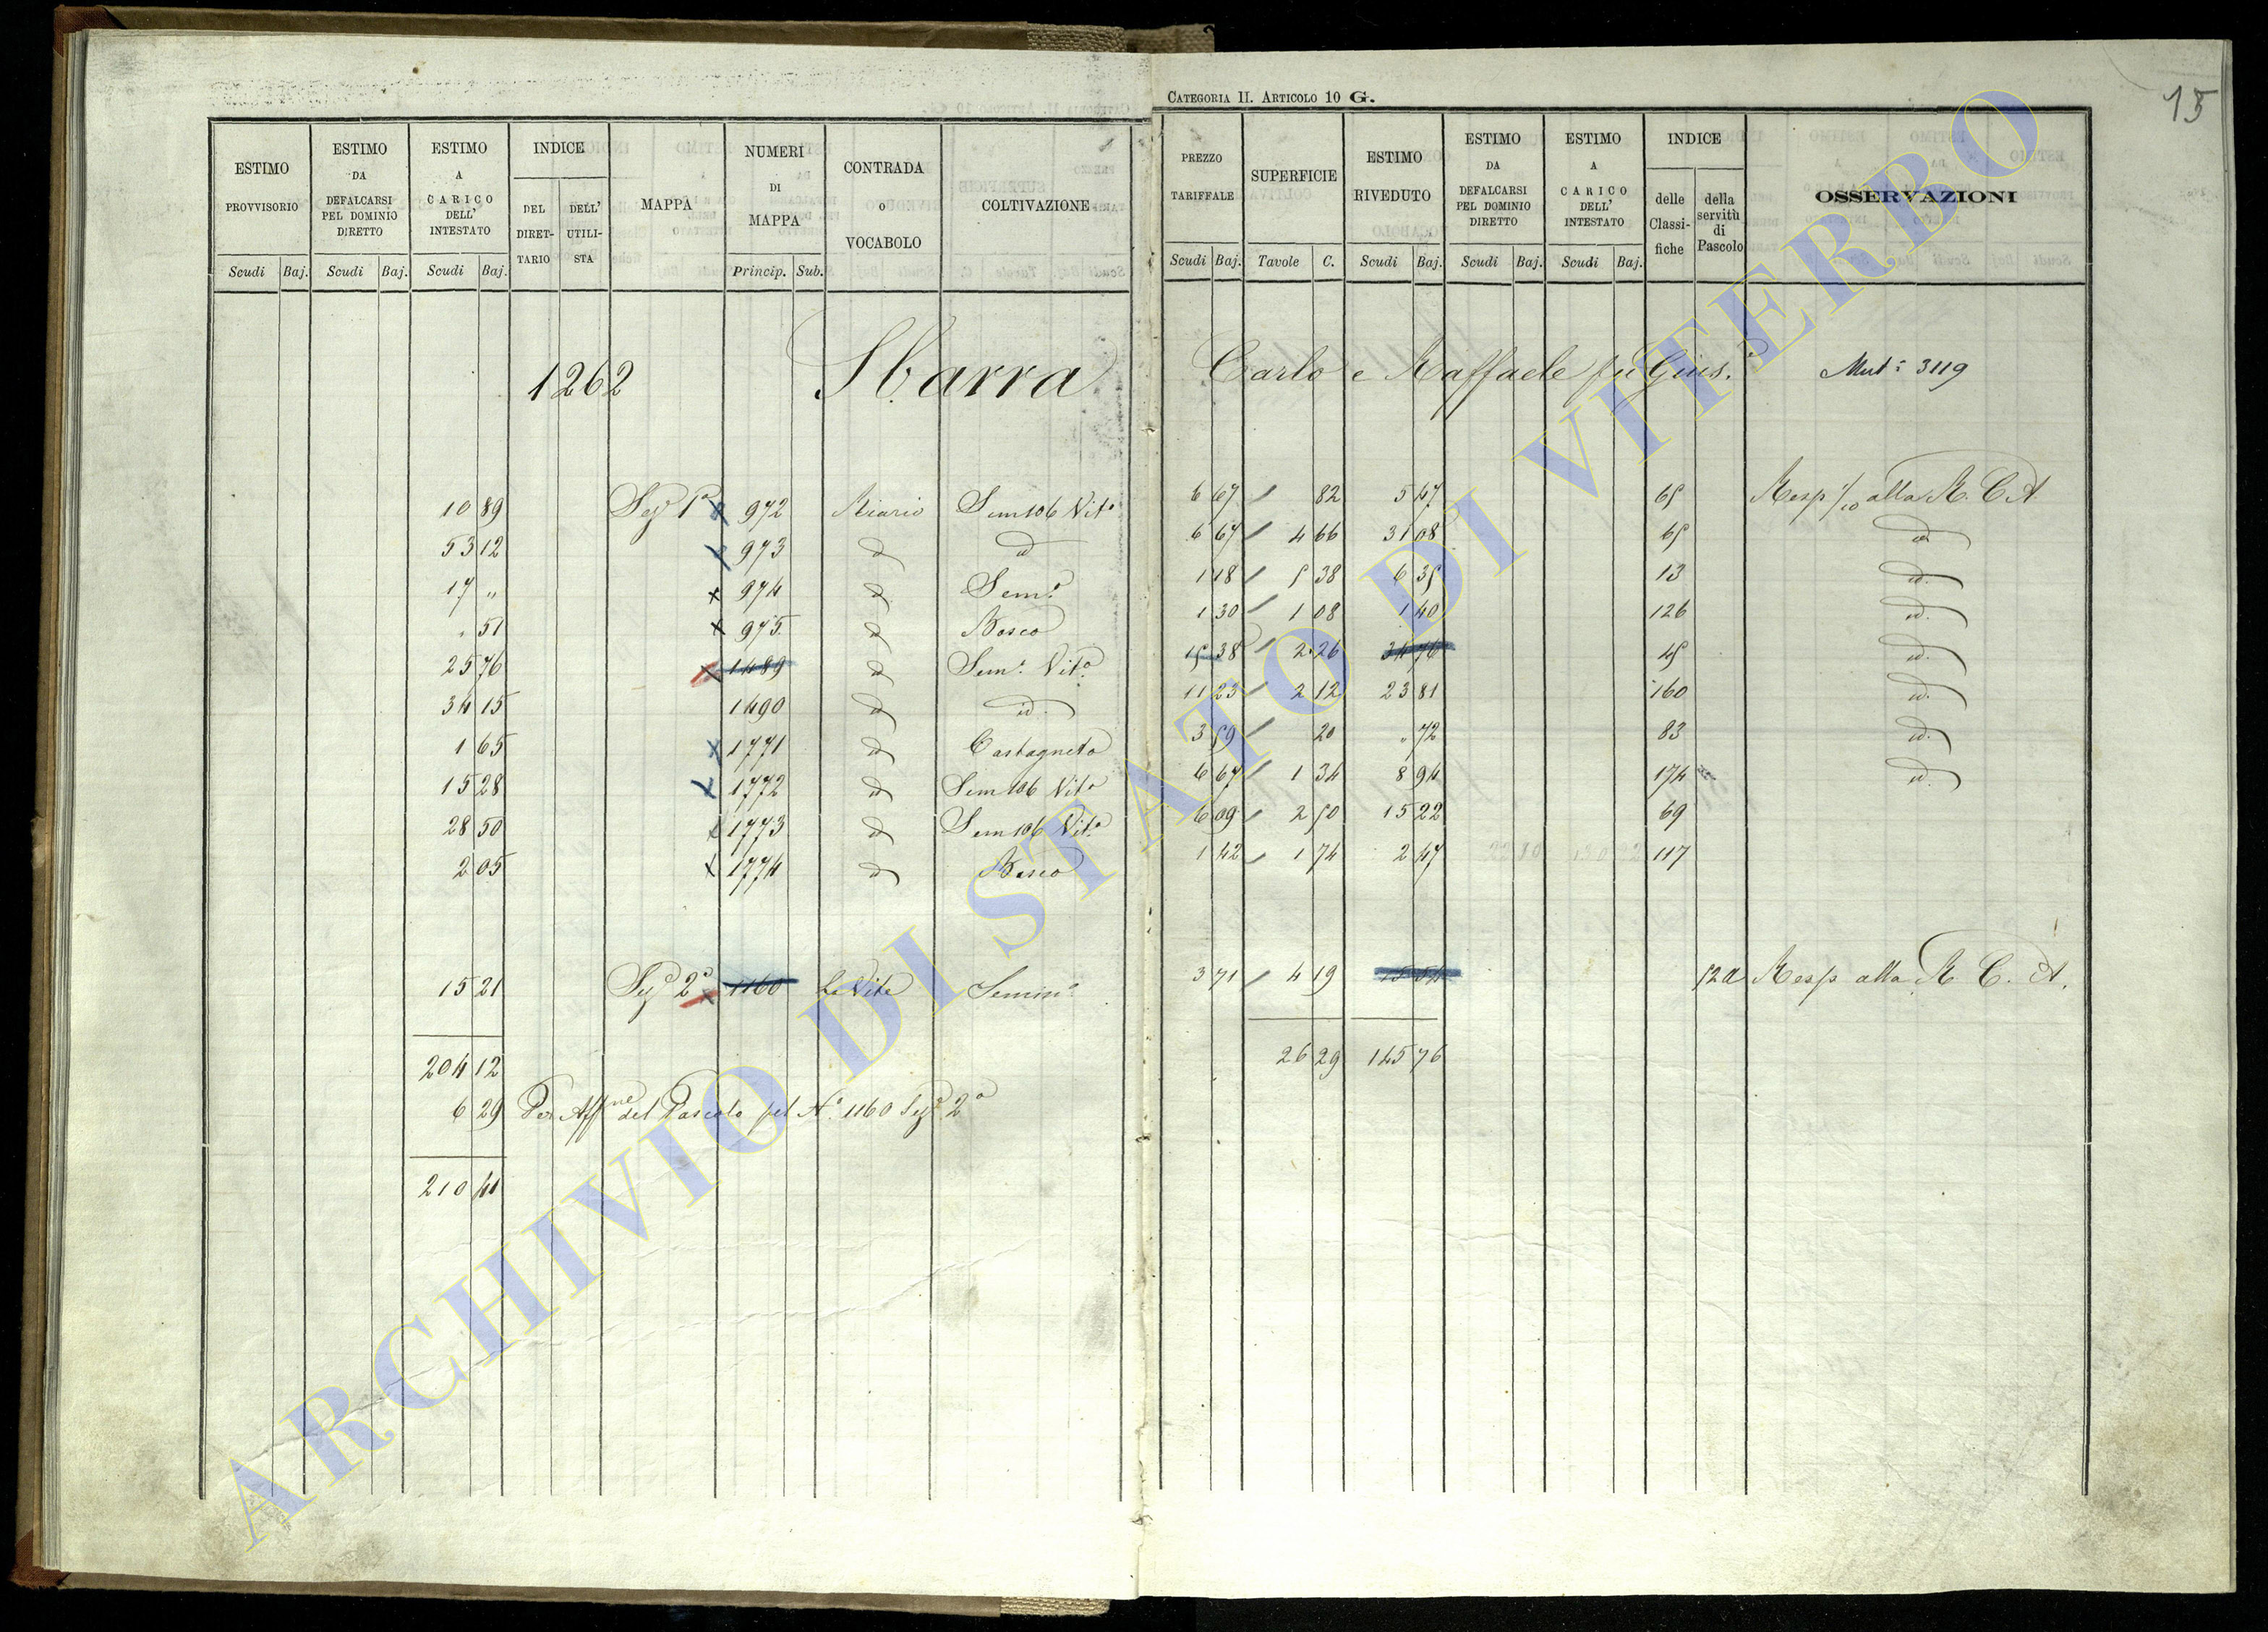 CATEGORIA II. ARTICOLO 10 G.
15
ESTIMO PROVVISORIO Scudi Baj.
ESTIMO DA DEFALCARSI PEL DOMINIO DIRETTO Scudi Baj.
ESTIMO A CARICO DELL' INTESTATO Scudi Baj.
INDICE DEL DIRET-TARIO DELL' UTILI-STA
MAPPA
NUMERI DI MAPPA Princip. Sub.
CONTRADA o VOCABOLO
COLTIVAZIONE
PREZZO TARIFFALE Scudi Baj.
SUPERFICIE Tavole C.
ESTIMO RIVEDUTO Scudi Baj.
ESTIMO DA DEFALCARSI PEL DOMINIO DIRETTO Scudi Baj.
ESTIMO A CARICO DELL' INTESTATO Scudi Baj.
INDICE delle Classi-fiche della servitù di Pascolo
OSSERVAZIONI
1262 Sbarra Carlo e Raffaele fu Gius.e Mut.e 3119
10 89 Sez.e 1a x 972 Miario Sem 106 Vit.o 6 67 / 82 5 47 65 Resp 1/10 alla R. C. A.
53 12 x 973 id id 6 67 / 4 66 31 08 65 id
17 " x 974 id Sem.o 1 18 / 5 38 6 35 13 id.
" 51 x 975 id Bosco 1 30 / 1 08 1 40 126 id.
25 76 x 1489 id Sem.o Vit.o 15 38 / 2 26 34 76 45 id.
34 15 1490 id id. 11 23 / 2 12 23 81 160 id.
1 65 x 1771 id Castagneto 3 59 / 20 " 72 83 id.
15 28 x 1772 id Sem 106 Vit.o 6 67 / 1 34 8 94 174 id.
28 50 x 1773 id Sem 106 Vit.o 6 09 / 2 50 15 22 69
2 05 x 1774 id Bosco 1 42 / 1 74 2 47 117
15 21 Sez.e 2a x 1160 Le Vite Semin.o 3 71 / 4 19 15 54 52a Resp alla R. C. A.
204 12 26 29 145 76
6 29 Per Aff.ne del Pascolo pel N.o 1160 Sez.e 2a
210 41
ARCHIVIO DI STATO DI VITERBO